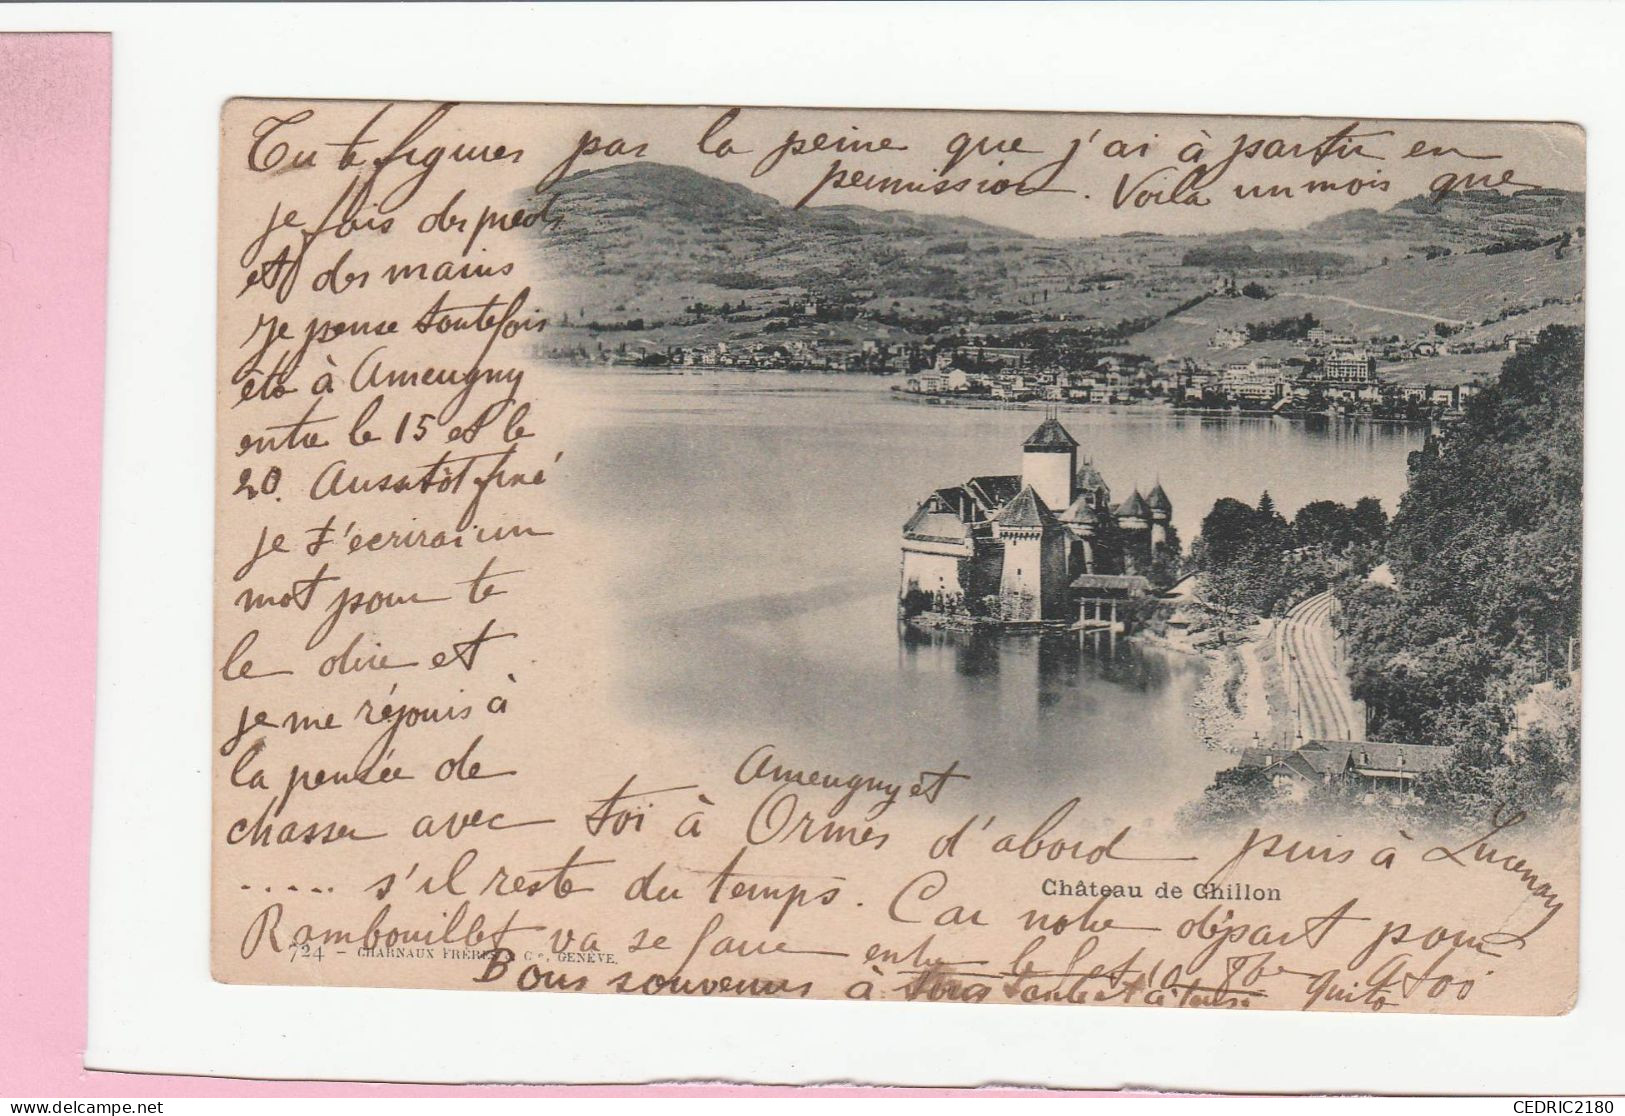 Tu te figures pas la peine que j'ai à partir en
permission. Voilà un mois que
je fais des pieds
et des mains
Je pense toutefois
être à Ameugny
entre le 15 et le
20. Aussitôt fixé
je t'écrirai un
mot pour te
le dire et
je me réjouis à
la pensée de
chasser avec toi à Ormes d'abord puis à Lucenay
Ameugny et
..... s'il reste du temps. Car notre départ pour
Château de Chillon
Rambouillet va se faire entre le
724 - CHARNAUX FRÈRES & Cie, GENÈVE.
Bons souvenirs à
à toi
CEDRIC2180